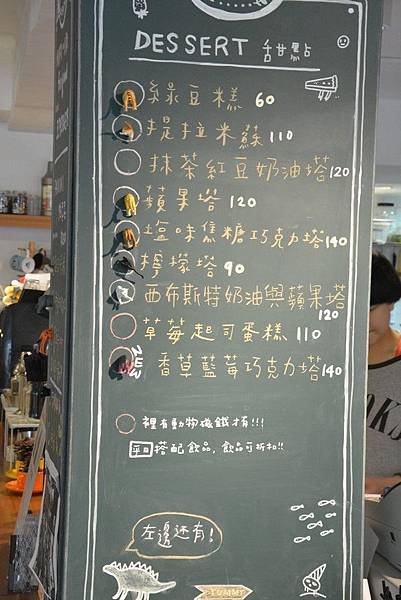 DESSERT 甜點
綠豆糕 60
提拉米蘇 110
抹茶紅豆奶油塔 120
蘋果塔 120
塩味焦糖巧克力塔 140
檸檬塔 90
西布斯特奶油與蘋果塔 120
草莓起司蛋糕 110
NEW 香草藍莓巧克力塔 140
裡有動物機鐵有!!!
平日搭配飲品,飲品可折扣!!
左邊还有!
YUMMY
OKS